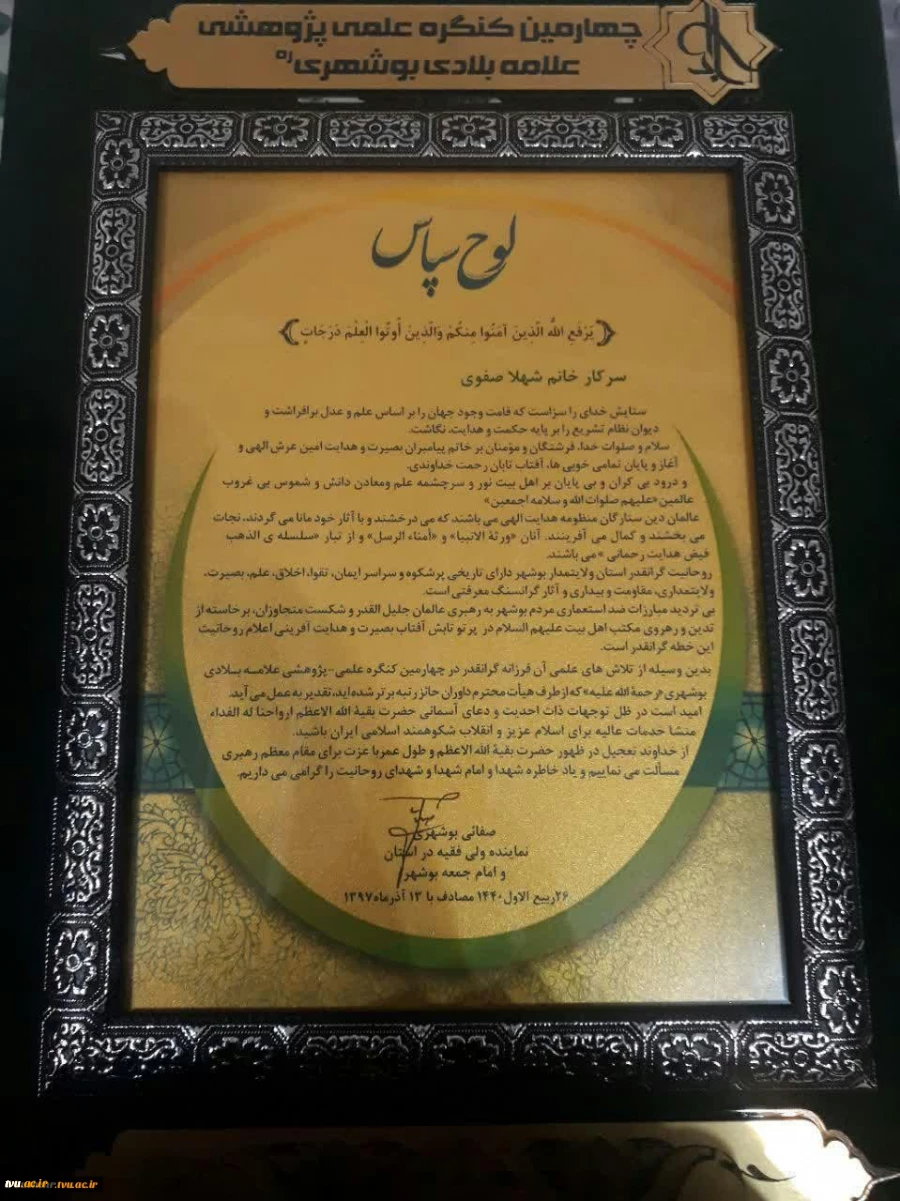 چهارمین کنگره علمی پژوهشی
علامه بلادی بوشهری ره
لوح سپاس
يَرْفَعِ اللَّهُ الَّذِينَ آمَنُوا مِنكُمْ وَالَّذِينَ أُوتُوا الْعِلْمَ دَرَجَاتٍ
سرکار خانم شهلا صفوی
ستایش خدای را سزاست که قامت وجود جهان را بر اساس علم و عدل برافراشت و
دیوان نظام تشریع را بر پایه حکمت و هدایت، نگاشت.
سلام و صلوات خدا، فرشتگان و مؤمنان بر خاتم پیامبران بصیرت و هدایت امین عرش الهی و
آغاز و پایان تمامی خوبی ها، آفتاب تابان رحمت خداوندی.
و درود بی کران و بی پایان بر اهل بیت نور و سرچشمه علم ومعادن دانش و شموس بی غروب
عالمین «علیهم صلوات الله و سلامه اجمعین»
عالمان دین ستارگان منظومه هدایت الهی می باشند که می درخشند و با آثار خود مانا می گردند، نجات
می بخشند و کمال می آفرینند. آنان «ورثة الانبیا» و «أمناء الرسل» و از تبار «سلسله ی الذهب
فیض هدایت رحمانی »می باشند.
روحانیت گرانقدر استان ولایتمدار بوشهر دارای تاریخی پرشکوه و سراسر ایمان، تقوا، اخلاق، علم، بصیرت،
ولایتمداری، مقاومت و بیداری و آثار گرانسنگ معرفتی است.
بی تردید مبارزات ضد استعماری مردم بوشهر به رهبری عالمان جلیل القدر و شکست متجاوزان، برخاسته از
تدین و رهروی مکتب اهل بیت علیهم السلام در پرتو تابش آفتاب بصیرت و هدایت آفرینی اعلام روحانیت
این خطه گرانقدر است.
بدین وسیله از تلاش های علمی آن فرزانه گرانقدر در چهارمین کنگره علمی-پژوهشی علامه بلادی
بوشهری «رحمة الله علیه» که ازطرف هیأت محترم داوران حائز رتبه برتر شده اید، تقدیر به عمل می آید.
امید است در ظل توجهات ذات احدیت و دعای آسمانی حضرت بقیة الله الاعظم ارواحنا له الفداء
منشا خدمات عالیه برای اسلام عزیز و انقلاب شکوهمند اسلامی ایران باشید.
از خداوند تعجیل در ظهور حضرت بقیة الله الاعظم و طول عمربا عزت برای مقام معظم رهبری
مسألت می نماییم و یاد خاطره شهدا و امام شهدا و شهدای روحانیت را گرامی می داریم.
صفائی بوشهری
نماینده ولی فقیه در استان
و امام جمعه بوشهر
۲۶ربیع الاول۱۴۴۰ مصادف با ۱۳ آذرماه۱۳۹۷
tvu.ac.ir